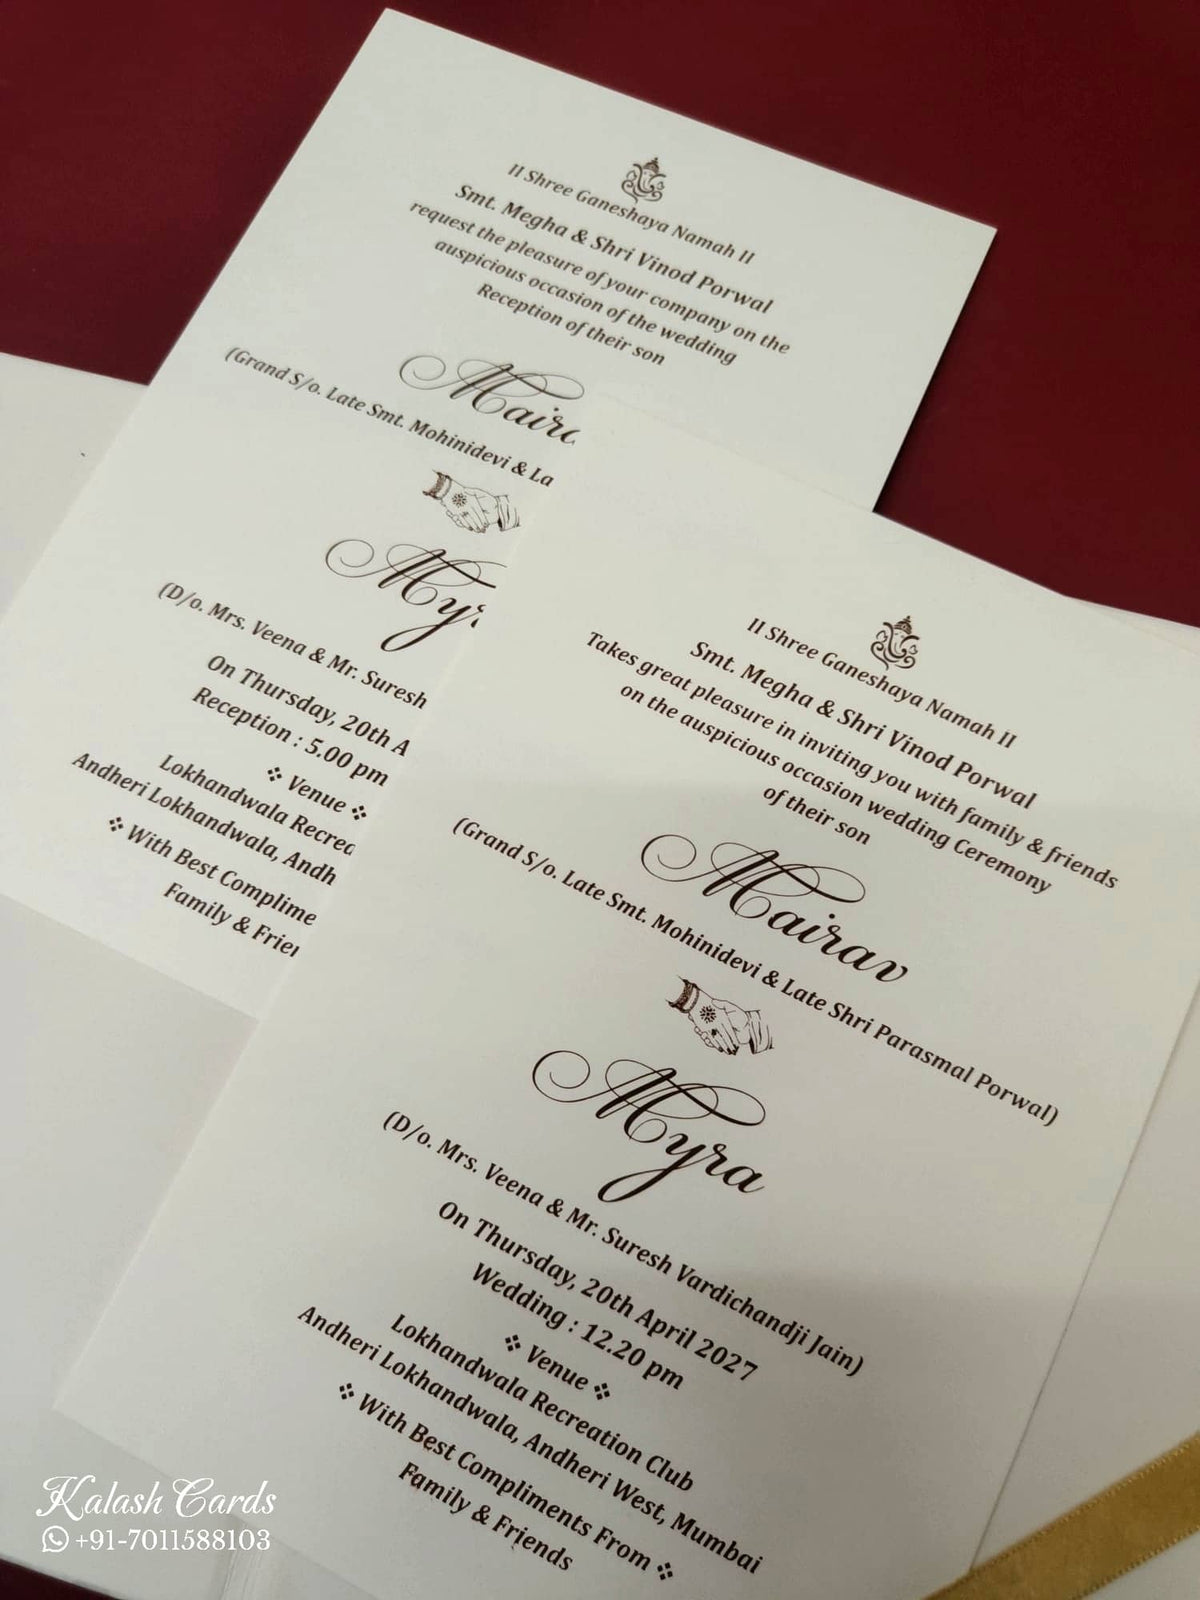 II Shree Ganeshaya Namah II
Smt. Megha & Shri Vinod Porwal
request the pleasure of your company on the
auspicious occasion of the wedding
Reception of their son
(Grand S/o. Late Smt. Mohinidevi &
(D/o. Mrs. Veena & Mr. Suresh
On Thursday, 20th
Reception : 5.00 pm
Venue
Lokhandwala
Andheri Lokhandwala,
With Best
Family &
II Shree Ganeshaya Namah II
Smt. Megha & Shri Vinod Porwal
Takes great pleasure in inviting you with family & friends
on the auspicious occasion wedding Ceremony
of their son
Mairav
(Grand S/o. Late Smt. Mohinidevi & Late Shri Parasmal Porwal)
Myra
(D/o. Mrs. Veena & Mr. Suresh Vardichandji Jain)
On Thursday, 20th April 2027
Wedding : 12.20 pm
Venue
Lokhandwala Recreation Club
Andheri Lokhandwala, Andheri West, Mumbai
With Best Compliments From
Family & Friends
Kalash Cards
+91-7011588103